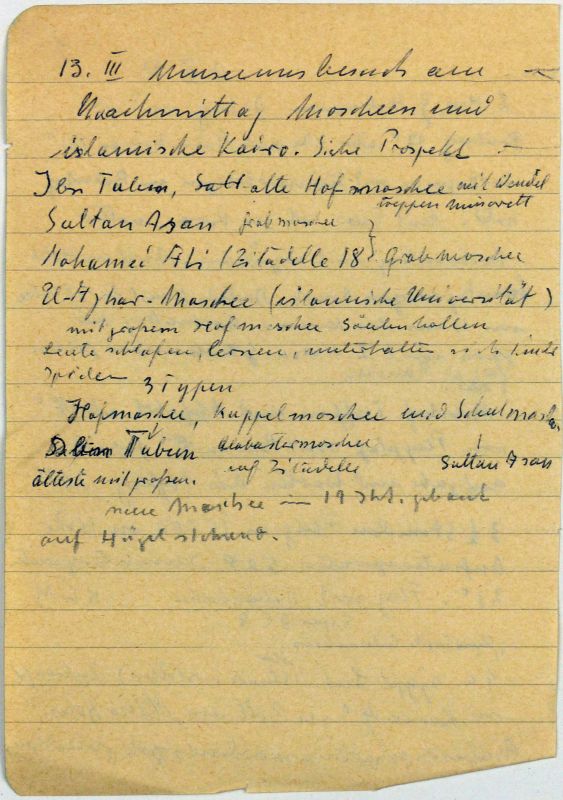 13. III Museumsbesuch am
Nachmittag Moscheen und
islamische Kairo. Siehe Prospekt –
Ibn Tulun, sehr alte Hofmoschee mit Wendel
treppen minarett
Sultan Asan Grabmoschee
Mohamed Ali (Zitadelle 18 Grabmoschee
El-Azhar-Moschee (islamische Universität)
mit großem Hof moschee Säulenhallen
Leute schlafen, lernen, unterhalten sich Kinder
spielen
3 Typen
Hofmoschee, Kuppelmoschee und Schulmoschee
Tulun Alabastermoschee
auf Zitadelle Sultan Asan
älteste mit großen.
neue Moschee im 19 Jht. gebaut
auf Hügel stehend.